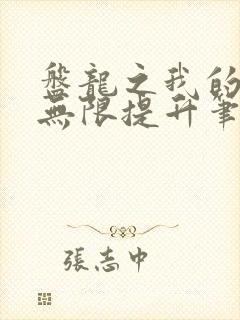 盤龍之我的
無限提升筆
張志中